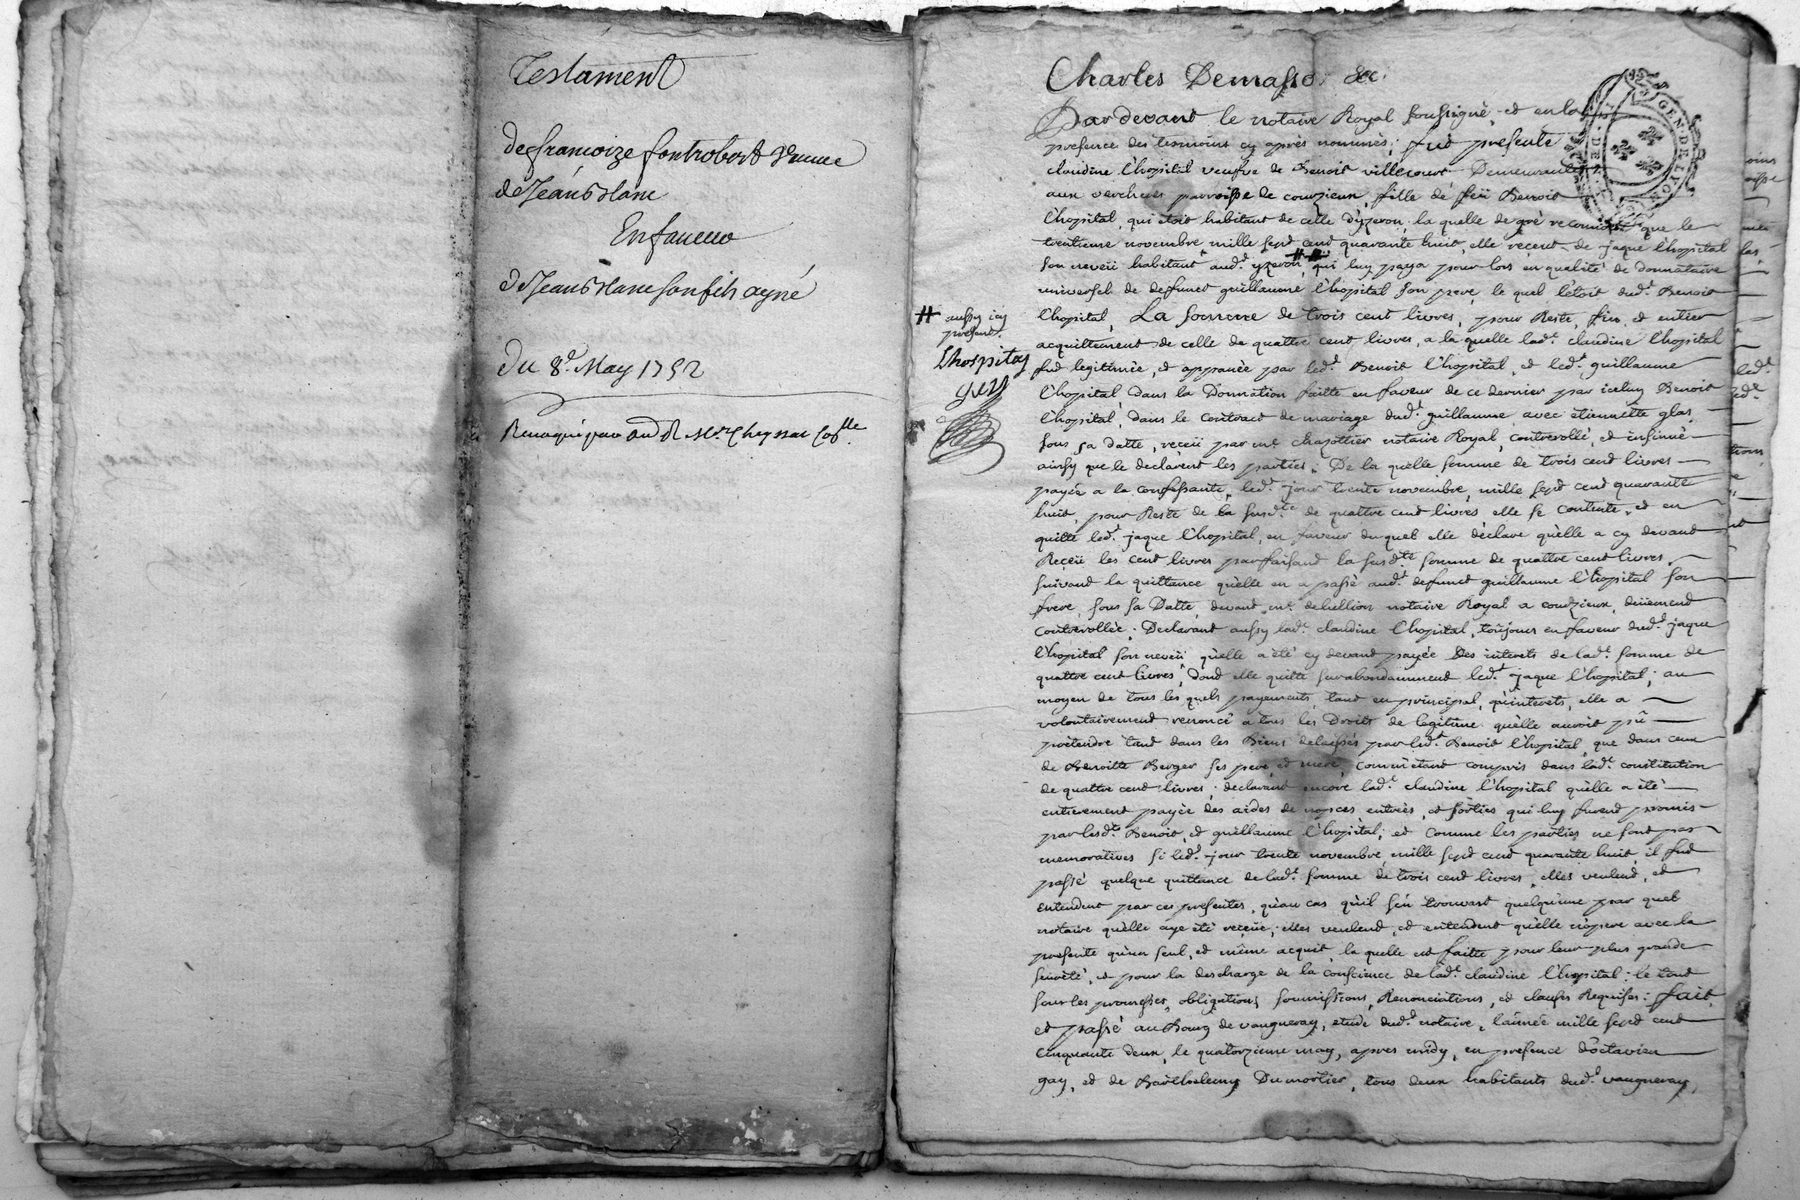 Testament
de francoize fontrobert veuve
de Jean blanc
En faveur
de Jean blanc son fils ayné
Du 8.e May 1752
Revoqué par aud.t Mr
Charles Demasso &c.
Par devant le notaire Royal soussigné, et en la
presence des temoins cy après nommés; fut presente
claudine l'hopital veufve de Benoit villecourt Demeurante
aux vercheres parroisse de courzieux, fille de feü Benoit
l'hopital, qui etoit habitant de celle d'yzeron; la quelle de gré reconnoit que le
trentieme novembre mille sept cent quarante huit, elle recent de jaque l'hopital
son neveü habitant aud.t yzeron # qui luy paya pour lors en qualité de donnataire
universel de defunct guillaume l'hopital son pere, le quel l'etoit dud.t Benoit
l'hopital, La somme de trois cent livres, pour Reste, fin, et entier
# aussy icy
present.
Lhospital
acquittement de celle de quattre cent livres, a la quelle lad.te claudine l'hopital
fut legitimée, et appanée par led.t Benoit l'hopital, et led.t guillaume
l'hopital dans la Donnation faitte en faveur de ce dernier par iceluy Benoit
l'hopital, dans le contract de mariage dud.t guillaume avec etiennette glas,
sous sa datte, receü par me chazottier notaire Royal, controrollé, et insinué
ainsy que le declarent les parties; De la quelle somme de trois cent livres
payée a la confessante, led.t jour trente novembre, mille sept cent quarante
huit, pour Reste de la susd.te de quattre cent livres elle se contente, et en
quitte led.t jaque l'hopital, en faveur du quel elle déclare qu'elle a cy devant
Receü les cent livres parfaisant la susd.te somme de quattre cent livres,
suivant la quittance qu'elle en a passé aud.t defunct guillaume l'hopital son
frere, sous sa Datte, devant me dehellion notaire Royal a courzieux, düement
controrollée; Declarant aussy lad.te claudine l'hopital, toujours en faveur dud.t jaque
l'hopital son neveü qu'elle a été cy devant payée Des interets de lad.te somme de
quattre cent livres, dont elle quitte surabondamment led.t jaque l'hopital; au
moyen de tous les quels payements, tant en principal, qu'interets, elle a
volontairement renoncé a tous les Droits de legitime qu'elle auroit pü
pretendre tant dans les Biens delaissés par led.t Benoit l'hopital, que dans ceux
de Benoitte Berger ses pere, et mere, comm'etant compris dans lad.te constitution
de quattre cent livres; declarant encore lad.te claudine l'hopital qu'elle a été
entierement payée des aides de nopces entrées, et sorties qui luy furent promis
par lesd.ts Benoit, et guillaume l'hopital; et comme les parties ne sont pas
memoratives si led.t jour trente novembre mille sept cent quarante huit, il fut
passé quelque quittance de lad.te somme de trois cent livres, elles veulent, et
entendent par ces presentes, qu'au cas qu'il s'en trouvast quelqu'une par quel
notaire qu'elle aye été receüe; elles veulent, et entendent qu'elle n'opere avec la
presente qu'un seul, et même acquit, la quelle est faitte pour leur plus grande
seureté, et pour la descharge de la conscience de lad.te claudine l'hopital; le tout
sous les promesses, obligations, soumissions, Renonciations, et clauses Requises: fait
et passé au Bourg de vaugneray, etude dud.t notaire, l'année mille sept cent
cinquante deux, le quatorzieme may, apres midy, en presence d'octavien
gay, et de Barthelemy Dumortier, tous deux habitants dud.t vaugneray,
GEN. DE LYON